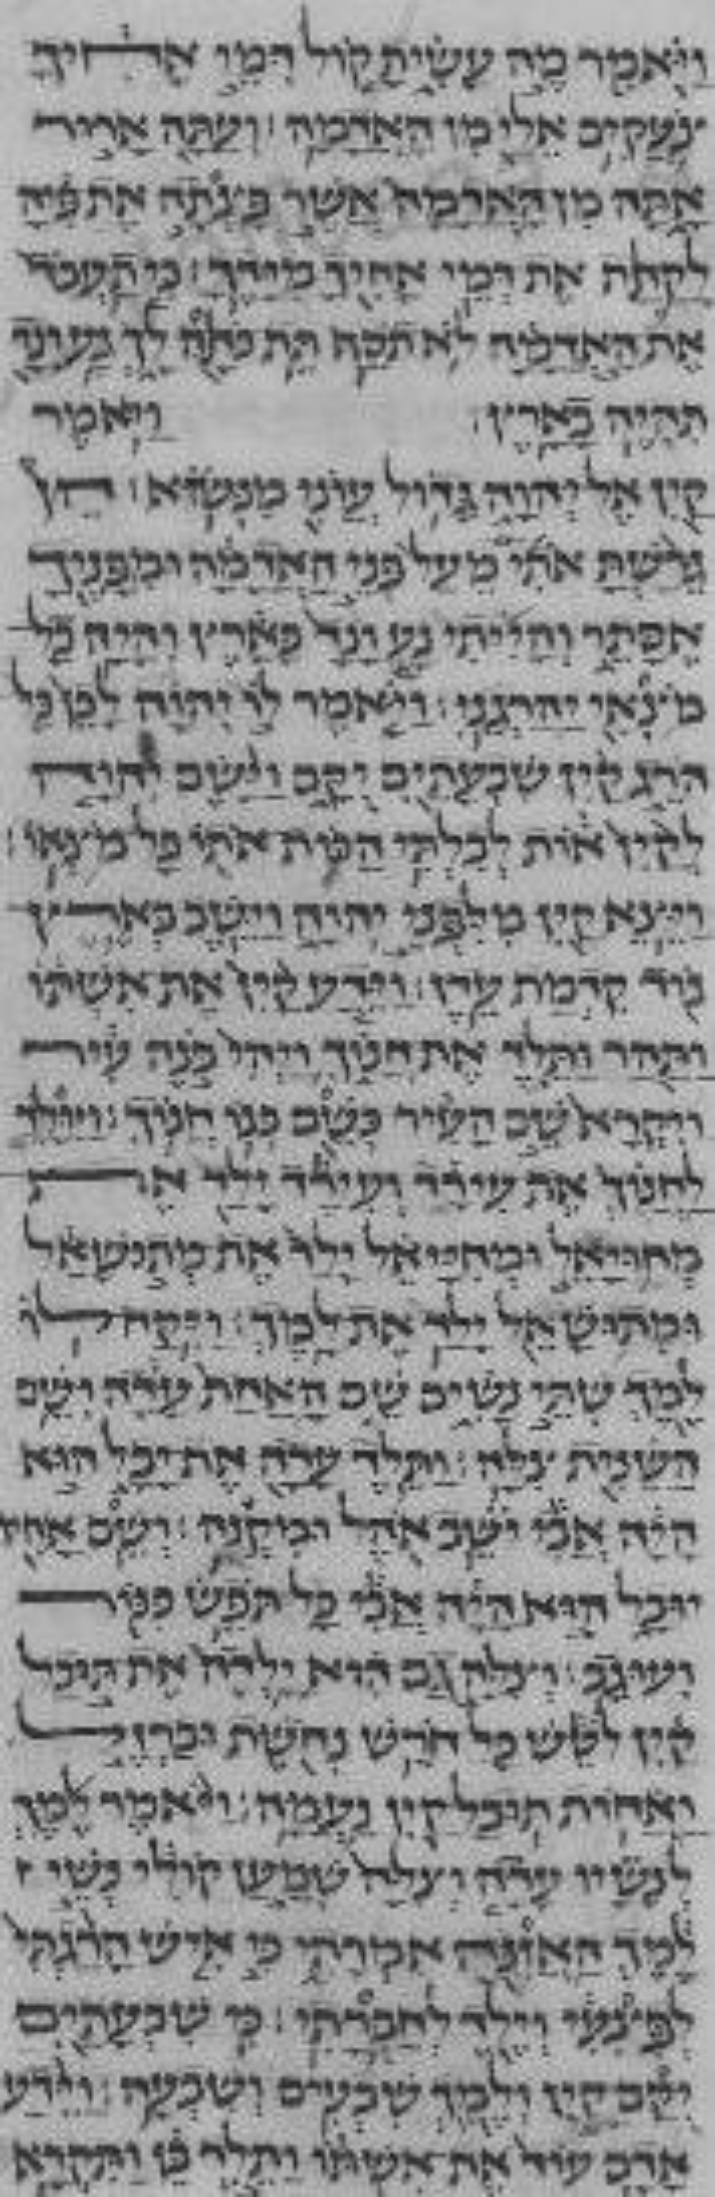 וַיֹּאמֶר מֶה עָשִׂיתָ קוֹל דְּמֵי אָחִיךָ
צֹעֲקִים אֵלַי מִן הָאֲדָמָה׃ וְעַתָּה אָרוּר
אָתָּה מִן הָאֲדָמָה אֲשֶׁר פָּצְתָה אֶת פִּיהָ
לָקַחַת אֶת דְּמֵי אָחִיךָ מִיָּדֶךָ׃ כִּי תַעֲבֹד
אֶת הָאֲדָמָה לֹא תֹסֵף תֵּת כֹּחָהּ לָךְ נָע וָנָד
תִּהְיֶה בָאָרֶץ׃ וַיֹּאמֶר
קַיִן אֶל יְהוָה גָּדוֹל עֲוֹנִי מִנְּשֹׂא׃ הֵן
גֵּרַשְׁתָּ אֹתִי מֵעַל פְּנֵי הָאֲדָמָה וּמִפָּנֶיךָ
אֶסָּתֵר וְהָיִיתִי נָע וָנָד בָּאָרֶץ וְהָיָה כָל
מֹצְאִי יַהַרְגֵנִי׃ וַיֹּאמֶר לוֹ יְהוָה לָכֵן כָּל
הֹרֵג קַיִן שִׁבְעָתַיִם יֻקָּם וַיָּשֶׂם יְהוָה
לְקַיִן אוֹת לְבִלְתִּי הַכּוֹת אֹתוֹ כָּל מֹצְאוֹ׃
וַיֵּצֵא קַיִן מִלִּפְנֵי יְהוָה וַיֵּשֶׁב בְּאֶרֶץ
נוֹד קִדְמַת עֵדֶן׃ וַיֵּדַע קַיִן אֶת אִשְׁתּוֹ
וַתַּהַר וַתֵּלֶד אֶת חֲנוֹךְ וַיְהִי בֹּנֶה עִיר
וַיִּקְרָא שֵׁם הָעִיר כְּשֵׁם בְּנוֹ חֲנוֹךְ׃ וַיִּוָּלֵד
לַחֲנוֹךְ אֶת עִירָד וְעִירָד יָלַד אֶת
מְחוּיָאֵל וּמְחִיָּיאֵל יָלַד אֶת מְתוּשָׁאֵל
וּמְתוּשָׁאֵל יָלַד אֶת לָמֶךְ׃ וַיִּקַּח לוֹ
לֶמֶךְ שְׁתֵּי נָשִׁים שֵׁם הָאַחַת עָדָה וְשֵׁם
הַשֵּׁנִית צִלָּה׃ וַתֵּלֶד עָדָה אֶת יָבָל הוּא
הָיָה אֲבִי יֹשֵׁב אֹהֶל וּמִקְנֶה׃ וְשֵׁם אָחִיו
יוּבָל הוּא הָיָה אֲבִי כָּל תֹּפֵשׂ כִּנּוֹר
וְעוּגָב׃ וְצִלָּה גַם הִוא יָלְדָה אֶת תּוּבַל
קַיִן לֹטֵשׁ כָּל חֹרֵשׁ נְחֹשֶׁת וּבַרְזֶל
וַאֲחוֹת תּוּבַל קַיִן נַעֲמָה׃ וַיֹּאמֶר לֶמֶךְ
לְנָשָׁיו עָדָה וְצִלָּה שְׁמַעַן קוֹלִי נְשֵׁי
לֶמֶךְ הַאֲזֵנָּה אִמְרָתִי כִּי אִישׁ הָרַגְתִּי
לְפִצְעִי וְיֶלֶד לְחַבֻּרָתִי׃ כִּי שִׁבְעָתַיִם
יֻקַּם קָיִן וְלֶמֶךְ שִׁבְעִים וְשִׁבְעָה׃ וַיֵּדַע
אָדָם עוֹד אֶת אִשְׁתּוֹ וַתֵּלֶד בֵּן וַתִּקְרָא